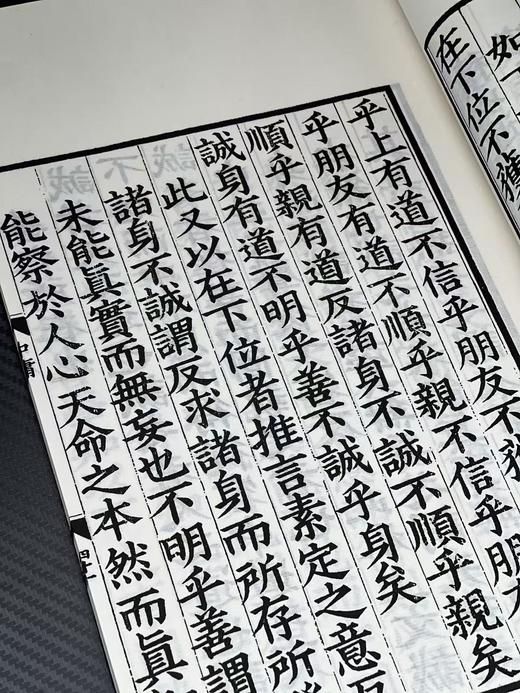 如
在下位不獲
乎上有道不信乎朋友不獲
乎朋友有道不順乎親不信乎朋
順乎親有道反諸身不誠不順乎親矣
誠身有道不明乎善不誠乎身矣
此又以在下位者推言素定之意反
諸身不誠謂反求諸身而所存所
未能眞實而無妄也不明乎善謂
能察於人心天命之本然而眞
中庸